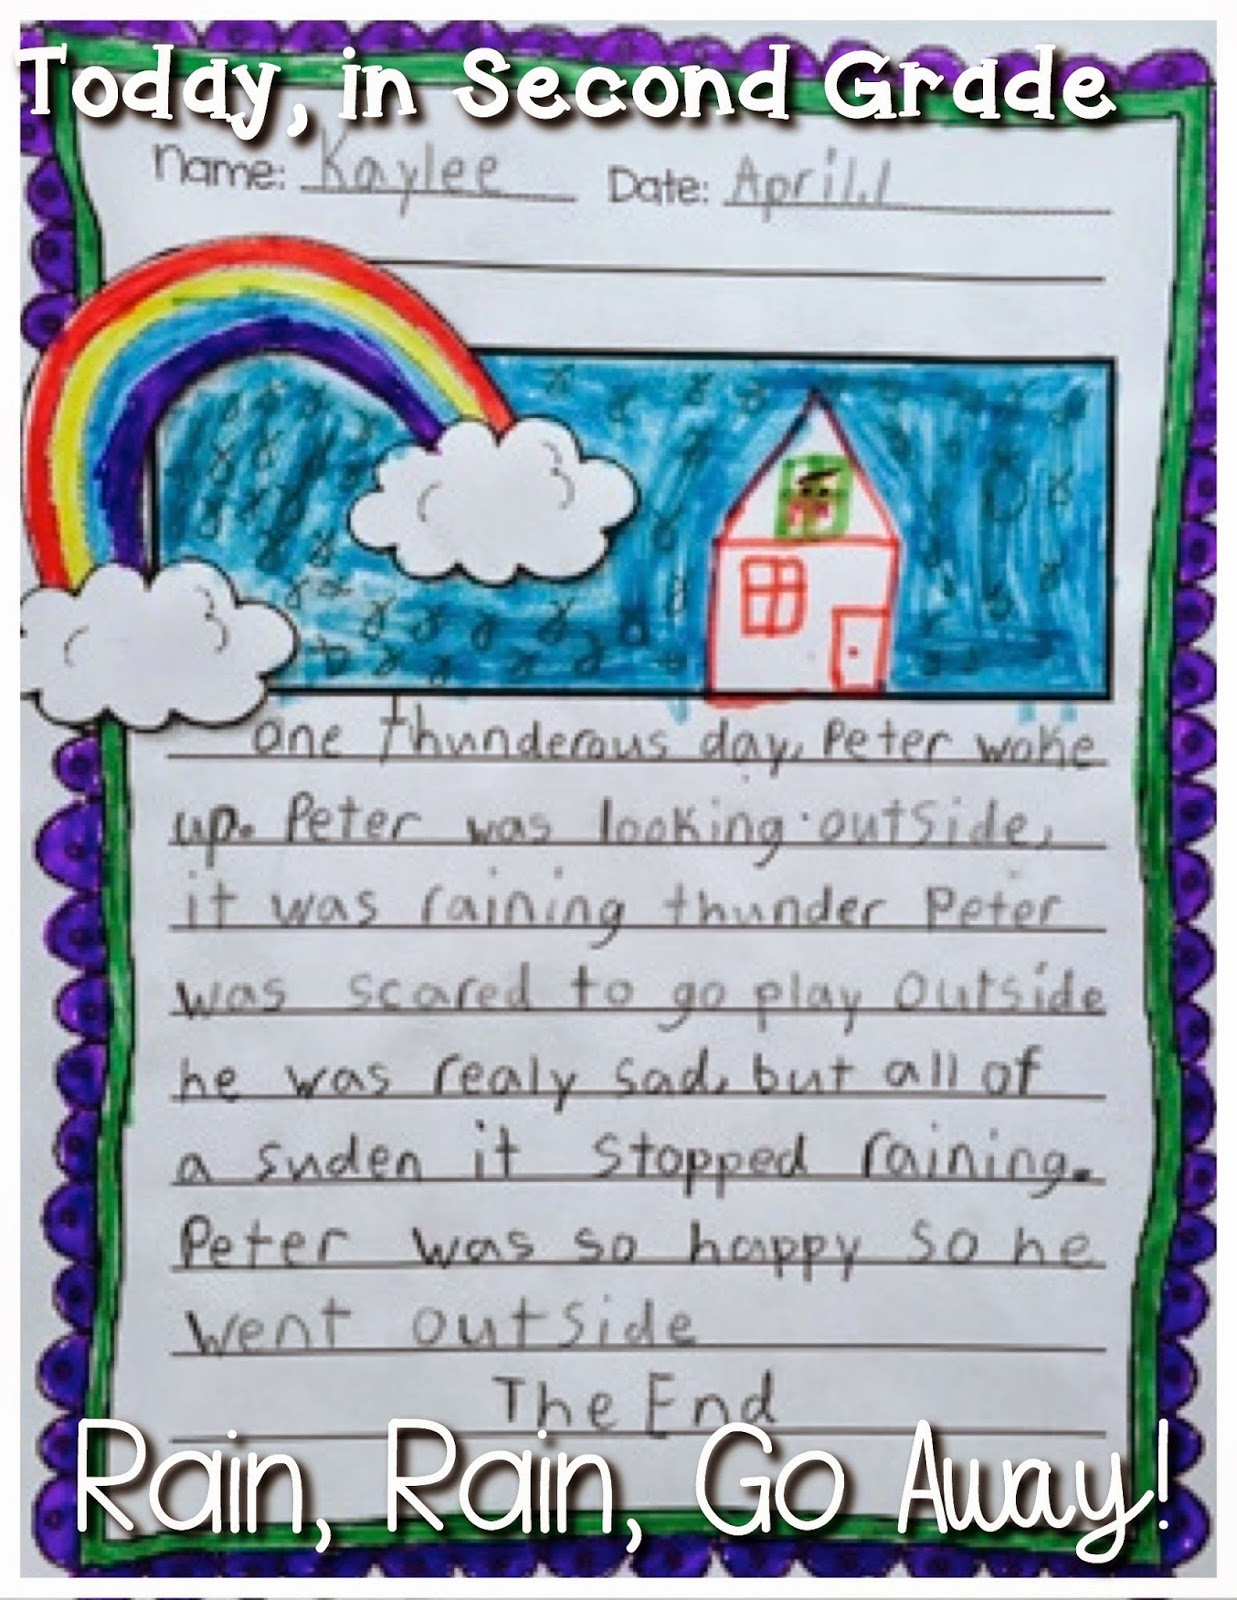 Today, in Second Grade
Name: Kaylee Date: April.1
one thunderous day, Peter woke
up. Peter was looking outside,
it was raining thunder Peter
was scared to go play outside
he was realy sad, but all of
a suden it stopped raining.
Peter was so happy so he
went outside
The End
Rain, Rain, Go Away!